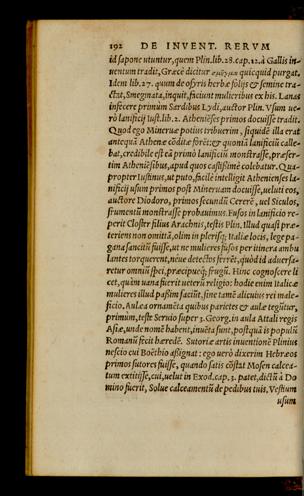 192 DE INVENT. RERVM
id sapone utuntur, quem Plin. lib. 28. cap. 12. à Gallis in
uentum tradit, Græcè dicitur quicquid purgat.
Idem lib. 27. quum de osyris herbæ folijs & semine tra-
ctat, Smegmata, inquit, faciunt mulieribus ex his. Lanas
inficere primùm Sardibus Lydi, auctor Plin. Vsum ue-
rò lanificij Iust. lib. 2. Athenieses primos docuisse tradit.
Quod ego Mineruæ potius tribuerim, siquidē illa erat
antequā Athenæ cōditæ forēt: & quoniā lanificiū calle-
bat, credibile est eā primò lanificiū monstrasse, præser-
tim Atheniēsibus, apud quos castissimè colebatur. Qua-
propter Iustinus, ut puto, facile intelligit Athenienses la-
nificij usum primos post Mineruam docuisse, ueluti eos,
auctore Diodoro, primos secundū Cererē, uel Siculos,
frumentū monstrasse probauimus. Fusos in lanificio re-
perit Closter filius Arachnis, testis Plin. Illud quasi præ-
teriens non omittā, olim in plerisq; Italiæ locis, lege pa-
gana sancitū fuisse, ut ne mulieres fusos per itinera ambu
lantes torquerent, néue detectos ferrēt, quòd id aduersa-
retur omniū spei, præcipueq́; frugū. Hinc cognoscere li
cet, quàm uana fuerit ueterū religio: hodie enim Italicæ
mulieres illud passim faciūt, sine tamē alicuius rei male-
ficio. Aulæa ornamēta quibus parietes & aulæ tegūtur,
primùm, teste Seruio super 3. Georg. in aula Attali regis
Asiæ, unde nomē habent, inuēta sunt, postquā is populū
Romanū fecit hæredē. Sutoriæ artis inuentionē Plinius
nescio cui Boëthio aßignat: ego uerò dixerim Hebræos
primos sutores fuisse, quando satis cōstat Mosen calcea-
tum extitisse, cui, uelut in Exod. cap. 3. patet, dictū à Do
mino fuerit, Solue calceamentū de pedibus tuis. Vestium
usum